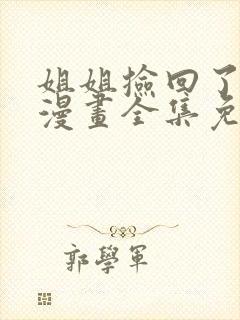 姐姐撿回了
漫畫全集免
郭學軍